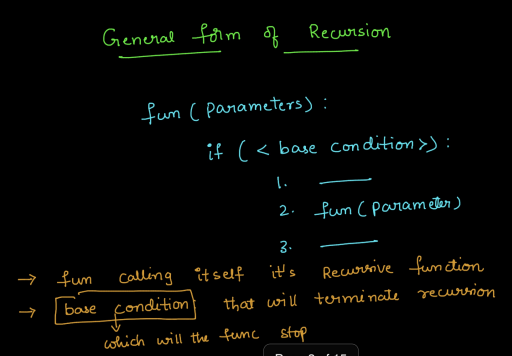 General form of Recursion
fun ( Parameters ) :
if ( < base condition > ) :
1. ———
2. fun ( parameter )
3. ———
→ fun calling itself it's Recursive function
→ base condition that will terminate recursion
which will the func stop